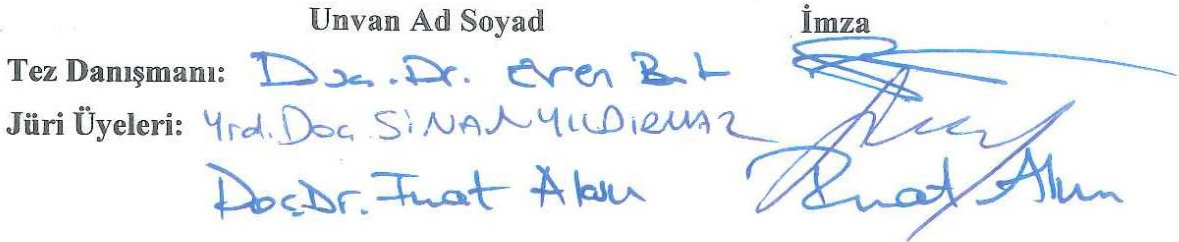 Unvan Ad Soyad İmza
Tez Danışmanı: Doç. Dr. Eren
Jüri Üyeleri: Yrd. Doç. SİNAN YILDIRMAZ
Doç. Dr. Fuat